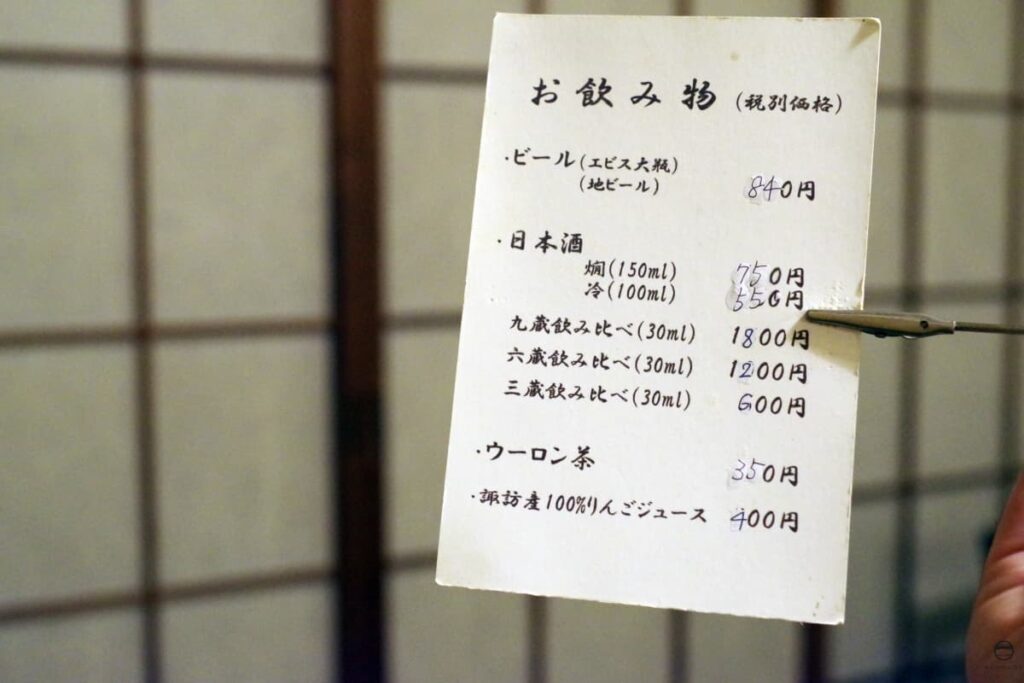 お飲み物 (税別価格)
・ビール(エビス大瓶)
(地ビール) 840円
・日本酒
燗(150ml) 750円
冷(100ml) 550円
九蔵飲み比べ(30ml) 1800円
六蔵飲み比べ(30ml) 1200円
三蔵飲み比べ(30ml) 600円
・ウーロン茶 350円
・諏訪産100%りんごジュース 400円